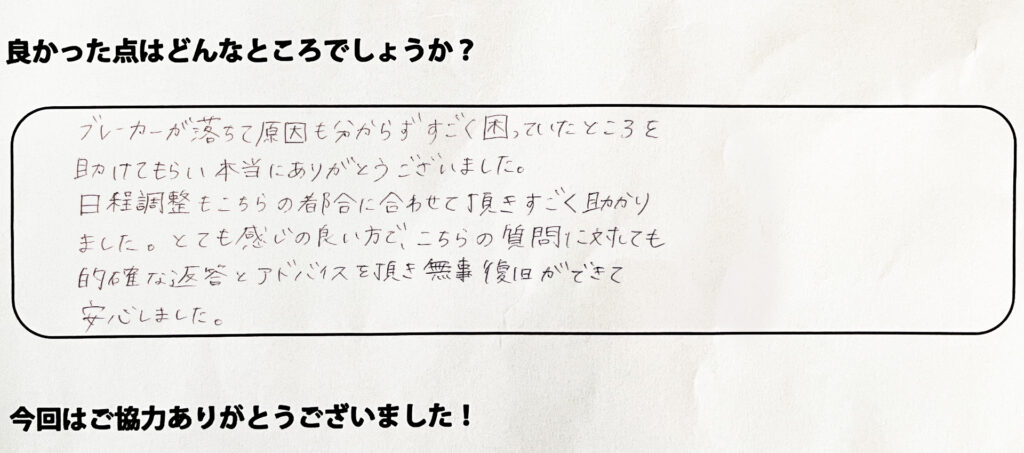 良かった点はどんなところでしょうか？
ブレーカーが落ちて原因も分からずすごく困っていたところを
助けてもらい本当にありがとうございました。
日程調整もこちらの都合に合わせて頂きすごく助かり
ました。とても感じの良い方で、こちらの質問に対しても
的確な返答とアドバイスを頂き無事復旧ができて
安心しました。
今回はご協力ありがとうございました！